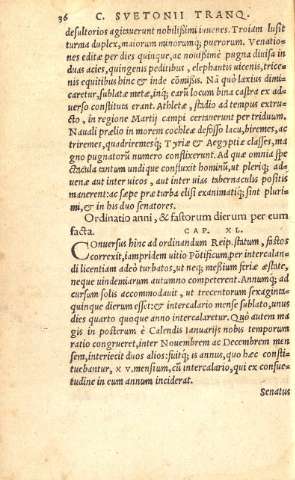 36 C. SVETONII TRANQ.
desultorios agitauerunt nobilissimi iuuenes. Troiam lusit
turma duplex, maiorum minorumq; puerorum. Venatio-
nes editæ per dies quinque, ac nouissimè pugna diuisa in
duas acies, quingenis peditibus, elephantis uicenis, trice-
nis equitibus hinc & inde cōmissis. Nā quò laxius dimi-
caretur, sublatæ metæ, inq; earū locum bina castra ex ad-
uerso constituta erant. Athletæ, stadio ad tempus extru-
cto, in regione Martij campi certauerunt per triduum.
Nauali prælio in morem cochleæ defosso lacu, biremes, ac
triremes, quadriremesq; Tyriæ & Aegyptiæ classes, ma
gno pugnatorū numero conflixerunt. Ad quæ omnia spe
ctacula tantum undique confluxit hominū, ut pleriq; ad-
uenæ aut inter uicos, aut inter uias tabernaculis positis
manerent: ac sæpe præ turba elisi exanimatiq; sint pluri-
mi, & in his duo senatores.
Ordinatio anni, & fastorum dierum per eum
facta. CAP. XL.
COnuersus hinc ad ordinandum Reip. statum, fastos
correxit, iampridem uitio Pōtificum, per intercalan-
di licentiam adeò turbatos, ut neq; messium feriæ æstate,
neque uindemiarum autumno competerent. Annumq; ad
cursum solis accommodauit, ut trecentorum sexaginta-
quinque dierum esset: & intercalario mense sublato, unus
dies quarto quoque anno intercalaretur. Quò autem ma
gis in posterum è Calendis Ianuarijs nobis temporum
ratio congrueret, inter Nouembrem ac Decembrem men
sem, interiecit duos alios: fuitq; is annus, quo hæc consti-
tuebantur, x v. mensium, cū intercalario, qui ex consue-
tudine in eum annum inciderat.
Senatus